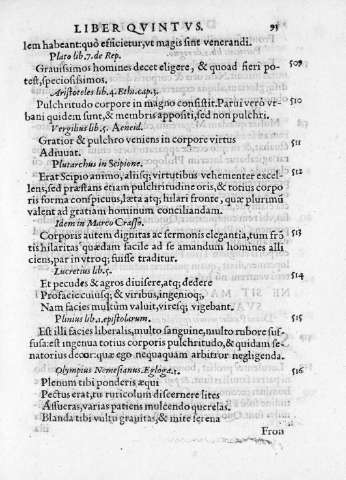 LIBER QVINTVS. 95
lem habeant: quò efficietur, vt magis sint venerandi.
Plato lib. 7. de Rep.
Grauissimos homines decet eligere, & quoad fieri po- 509
test, speciosissimos.
Aristoteles lib. 4. Ethi. cap. 3.
Pulchritudo corpore in magno consistit. Parui verò vr- 510
bani quidem sunt, & membris appositi, sed non pulchri.
Vergilius lib. 5. Aeneid.
Gratior & pulchro veniens in corpore virtus 511
Adiuuat.
Plutarchus in Scipione.
Erat Scipio animo, alijsq; virtutibus vehementer excel- 512
lens, sed præstans etiam pulchritudine oris, & totius corpo
ris forma conspicuus, læta atq; hilari fronte, quæ plurimũ
valent ad gratiam hominum conciliandam.
Idem in Marco Crasso.
Corporis autem dignitas ac sermonis elegantia, tum frõ 513
tis hilaritas quædam facile ad se amandum homines alli
ciens, par in vtroq; fuisse traditur.
Lucretius lib. 5.
Et pecudes & agros diuisere, atq; dedere 514
Pro facie cuiusq; & viribus, ingenioq;,
Nam facies multùm valuit, viresq; vigebant.
Plinius lib. 1. epistolarum.
Est illi facies liberalis, multo sanguine, multo rubore suf- 515
fusa: est ingenua totius corporis pulchritudo, & quidam se
natorius decor: quæ ego nequaquam arbitror negligenda.
Olympius Nemesianus. Egloga. 1.
Plenum tibi ponderis æqui 516
Pectus erat, tu ruricolum discernere lites
Assueras, varias patiens mulcendo querelas.
Blanda tibi vultu grauitas, & mite serena
Fron